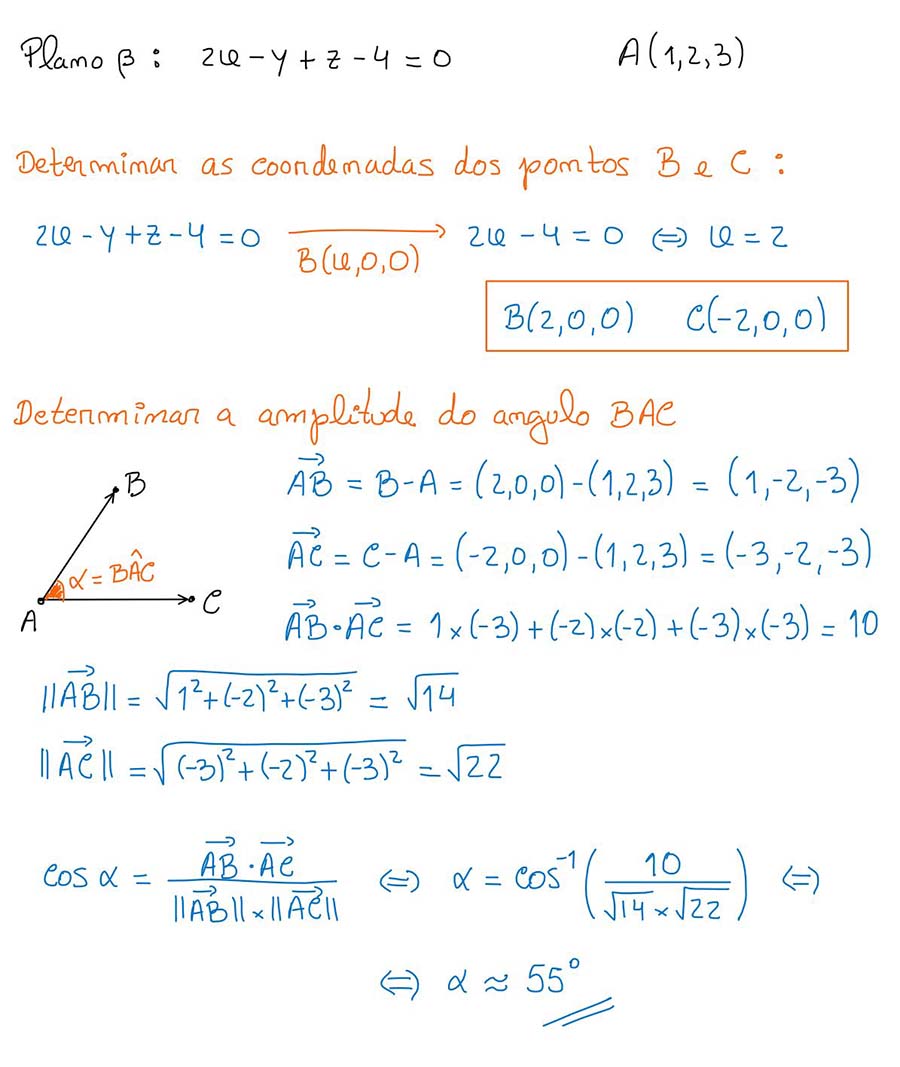 Plano β: 2x-y+z-4=0 A(1,2,3)
Determinar as coordenadas dos pontos B e C:
2x-y+z-4=0 B(x,0,0) → 2x-4=0 ⇔ x=2
B(2,0,0) C(-2,0,0)
Determinar a amplitude do angulo BAC
A B C α=BÂC
AB→ = B-A = (2,0,0)-(1,2,3) = (1,-2,-3)
AC→ = C-A = (-2,0,0)-(1,2,3) = (-3,-2,-3)
AB→·AC→ = 1×(-3)+(-2)×(-2)+(-3)×(-3) = 10
||AB→|| = √(1²+(-2)²+(-3)²) = √14
||AC→|| = √((-3)²+(-2)²+(-3)²) = √22
cos α = AB→·AC→ / ||AB→||×||AC→|| ⇔ α = cos⁻¹(10 / √14×√22) ⇔
⇔ α ≈ 55°